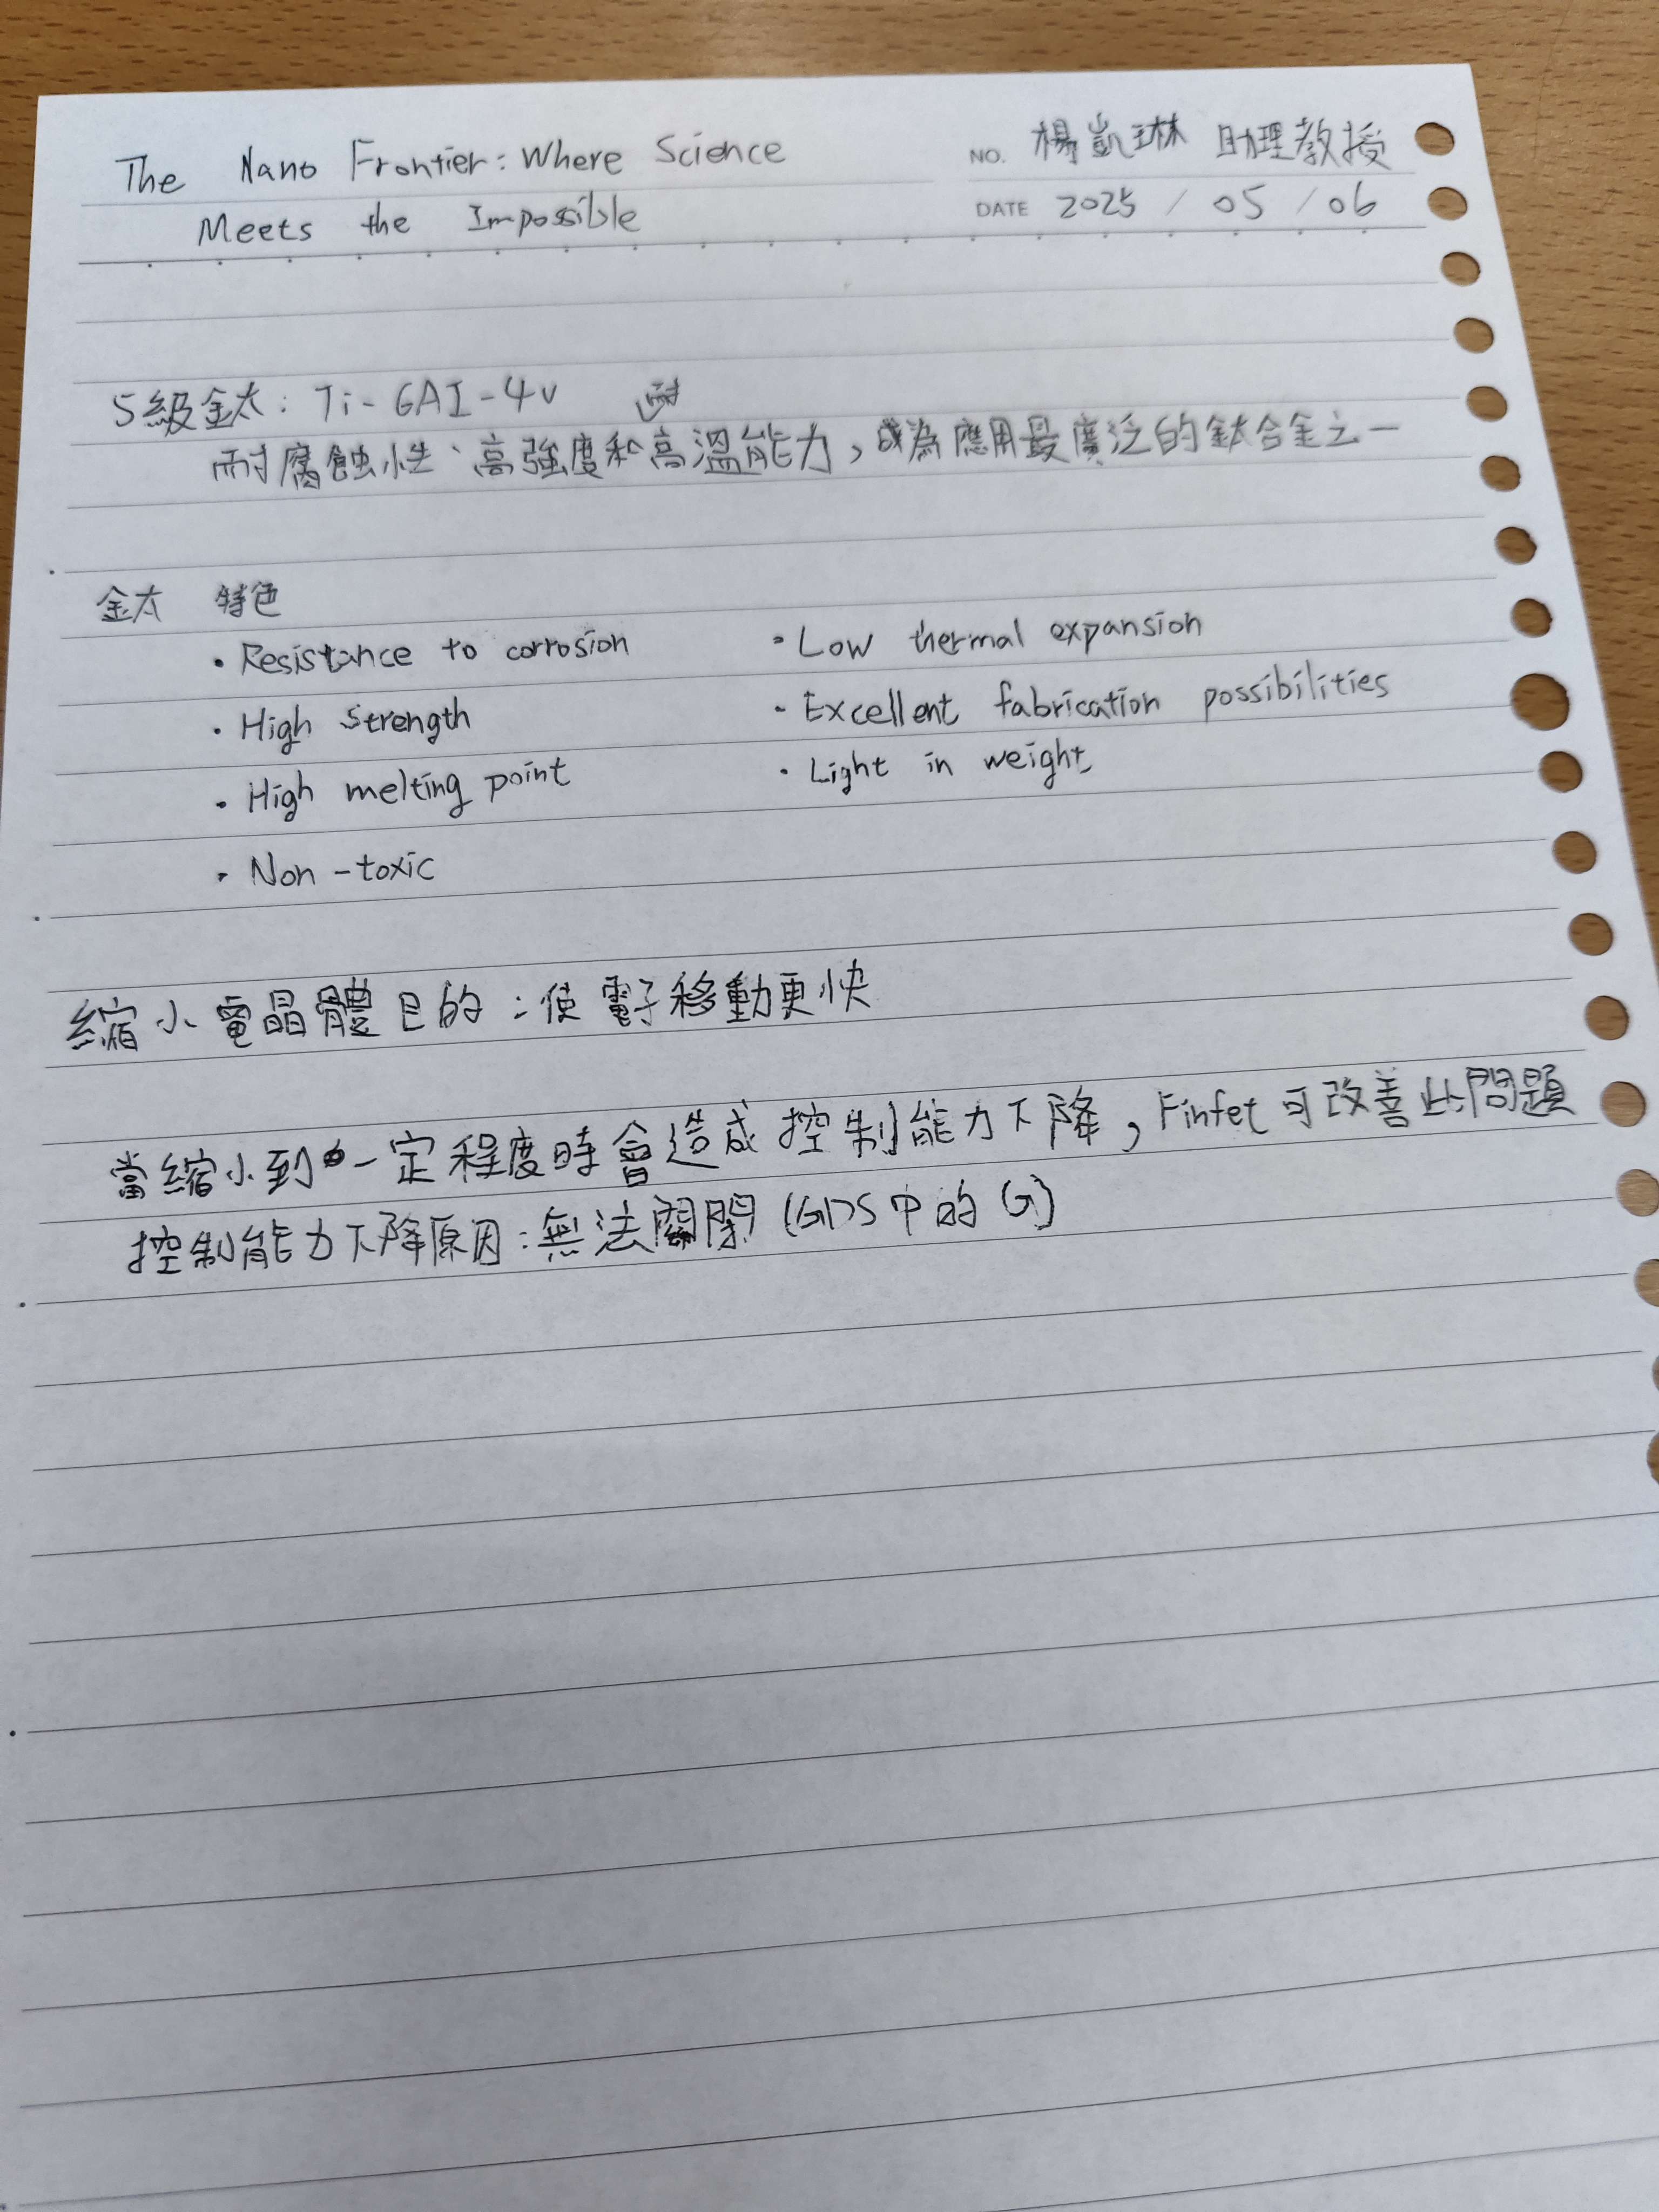 The Nano Frontier: Where Science
Meets the Impossible
NO. 楊凱琳 助理教授
DATE 2025 / 05 / 06
5級鈦: Ti-6Al-4V
耐
耐腐蝕性、高強度和高溫能力,成為應用最廣泛的鈦合金之一
鈦 特色
• Resistance to corrosion
• High strength
• High melting point
• Non-toxic
• Low thermal expansion
- Excellent fabrication possibilities
• Light in weight
縮小電晶體目的:使電子移動更快
當縮小到一定程度時會造成控制能力下降,Finfet可改善此問題
控制能力下降原因:無法關閉(GDS中的G)